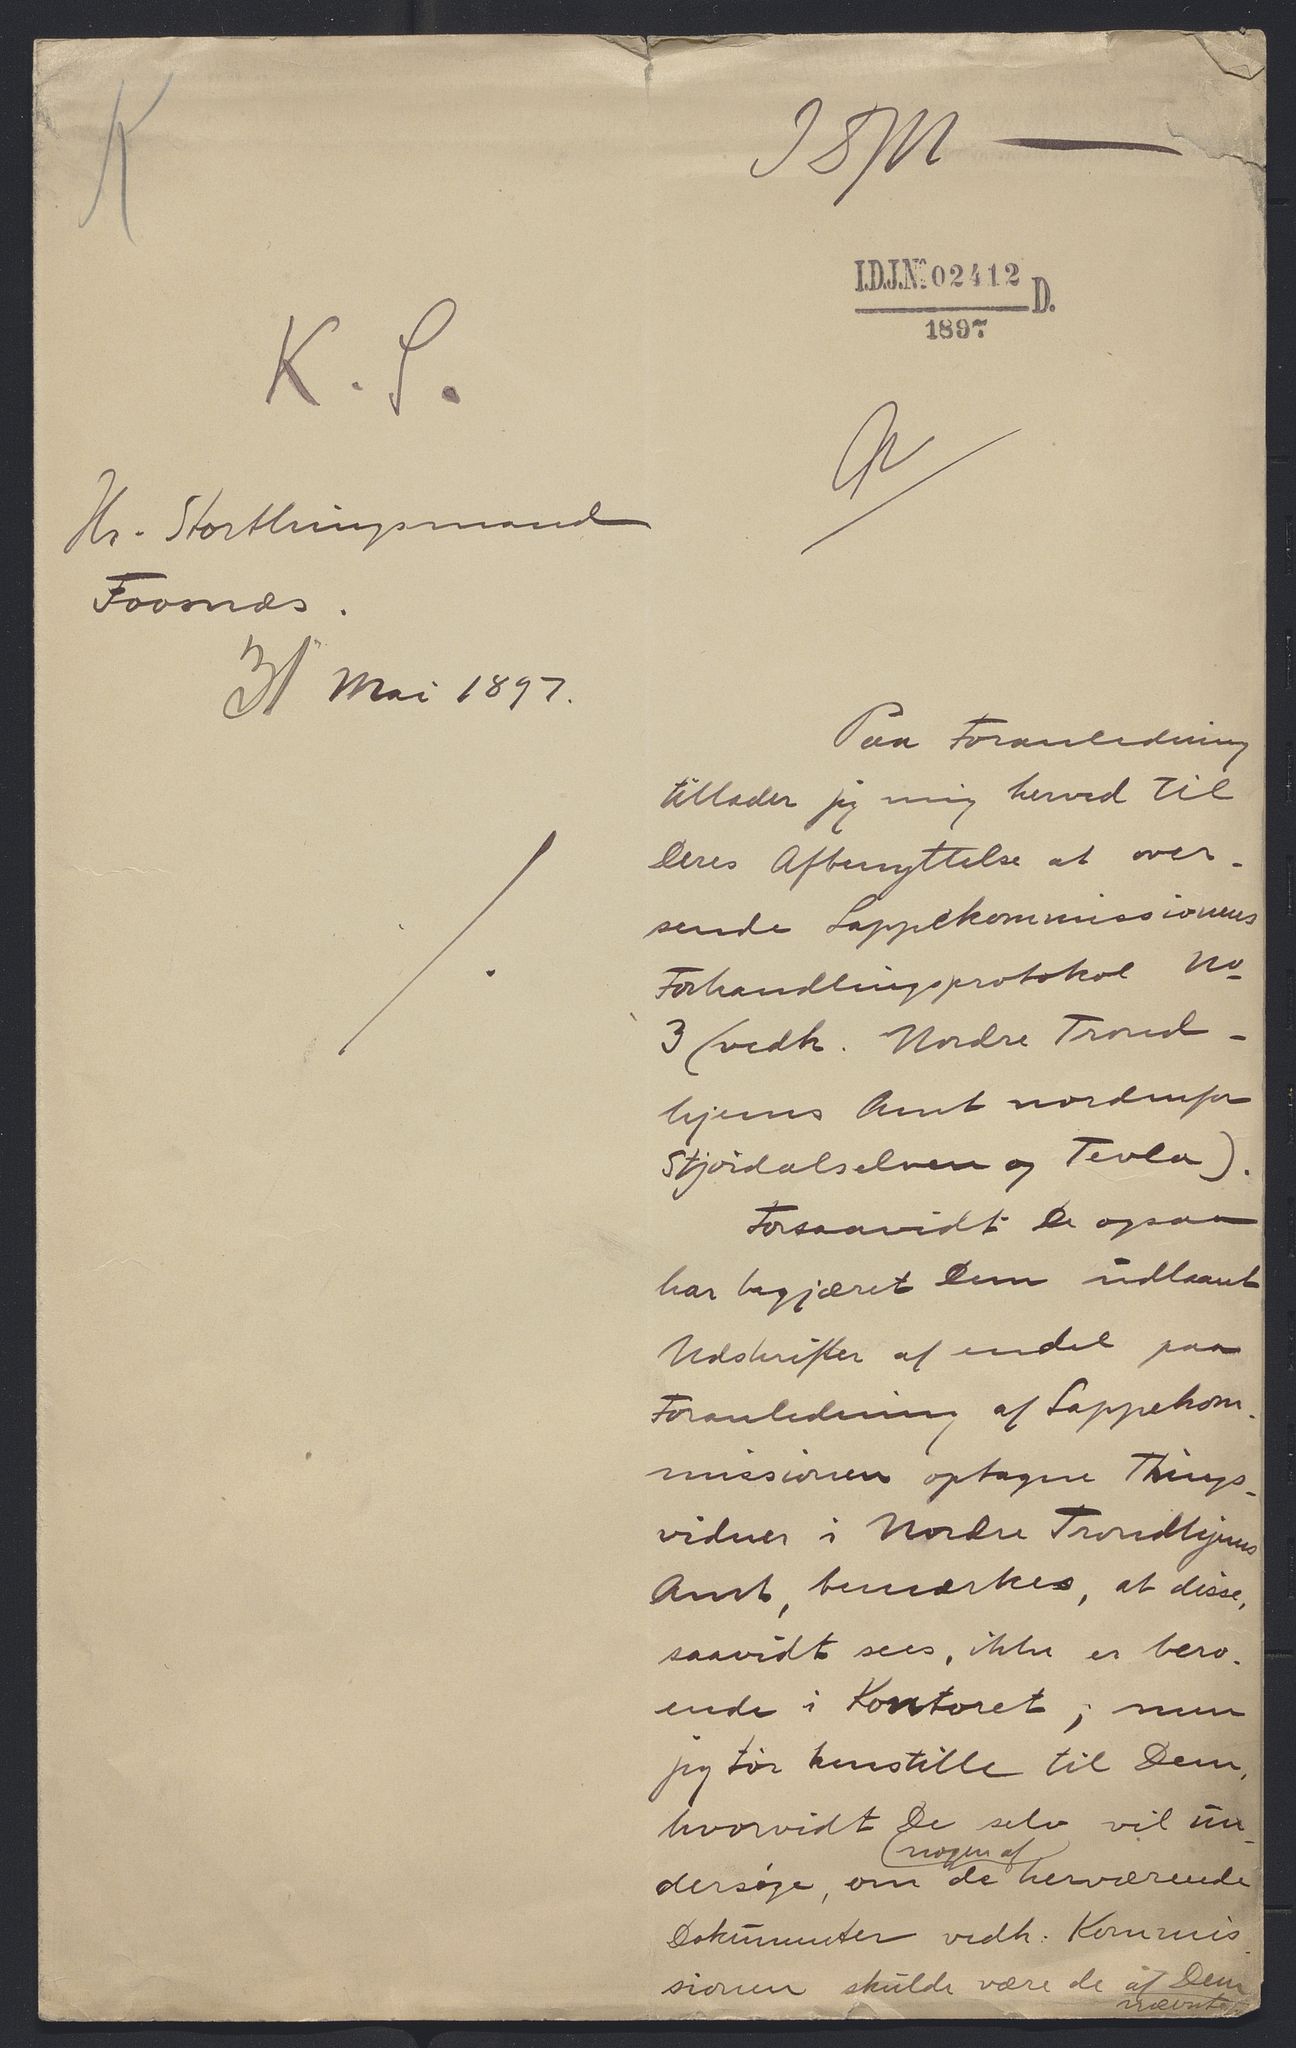 K
I S M
I.D.J.Nº 02412 D.
1897
K. S.
Hr. Storthingsmand
Foosnæs.
31 Mai 1897.
Paa Foranledning
tillader jeg mig herved til
Deres Afbenyttelse at over-
sende Lappekommissionens
Forhandlingsprotokol No
3 (vedk. Nordre Trond-
hjems Amt nordenfor
Stjørdalselven og Tevla).
Forsaavidt De ogsaa
har begjæret Dem udlaant
Udskrifter af endel paa
Foranledning af Lappekom-
missionen optagne Things-
vidner i Nordre Trondhjems
Amt, bemærkes, at disse,
saavidt sees, ikke er bero-
ende i Kontoret; men
jeg tør henstille til Dem,
hvorvidt De selv vil un-
nogen af
dersøge, om de herværende
Dokumenter vedk. Kommis
sionen skulde være de af Dem
nævnte